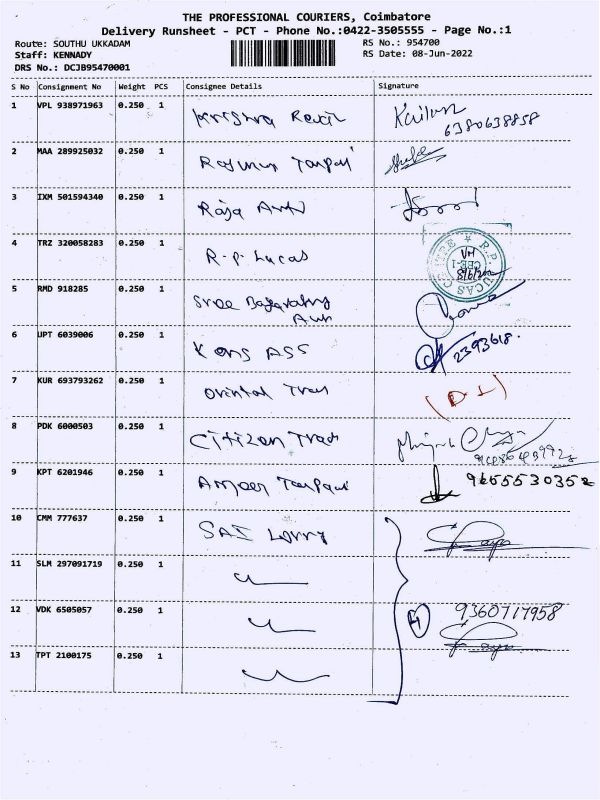 THE PROFESSIONAL COURIERS, Coimbatore
Delivery Runsheet - PCT - Phone No.:0422-3505555 - Page No.:1
Route: SOUTHU UKKADAM RS No.: 954700
Staff: KENNADY RS Date: 08-Jun-2022
DRS No.: DCJB95470001
S No Consignment No Weight PCS Consignee Details Signature
1 VPL 938971963 0.250 1 Krishna
6380638858
2 MAA 289925032 0.250 1
3 IXM 501594340 0.250 1 Raja
4 TRZ 320058283 0.250 1 R.P. Lucas
5 RMD 918285 0.250 1 Sree
6 UPT 6039006 0.250 1 ASS 2393618.
7 KUR 693793262 0.250 1
8 PDK 6000503 0.250 1 Citizen
9 KPT 6201946 0.250 1 9655530352
10 CMM 777637 0.250 1 SAI Lorry
11 SLM 297091719 0.250 1
12 VDK 6505057 0.250 1 4 9360717958
13 TPT 2100175 0.250 1